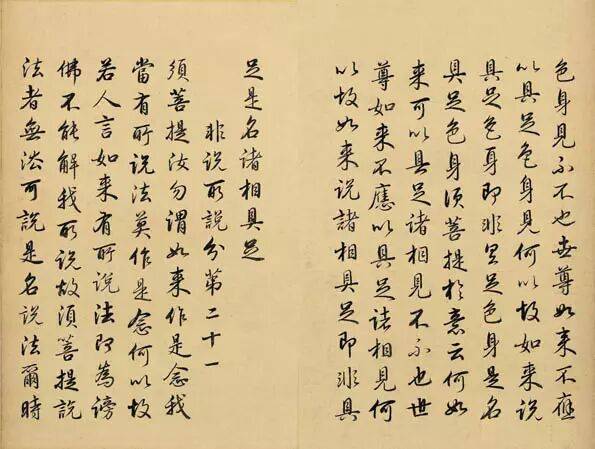 色身見不不也世尊如来不應
以具足色身見何以故如来說
具足色身即非具足色身是名
具足色身須菩提於意云何如
来可以具足諸相見不不也世
尊如来不應以具足諸相見何
以故如来說諸相具足即非具
足是名諸相具足
非說所說分第二十一
須菩提汝勿謂如来作是念我
當有所說法莫作是念何以故
若人言如来有所說法即為謗
佛不能解我所說故須菩提說
法者無法可說是名說法爾時